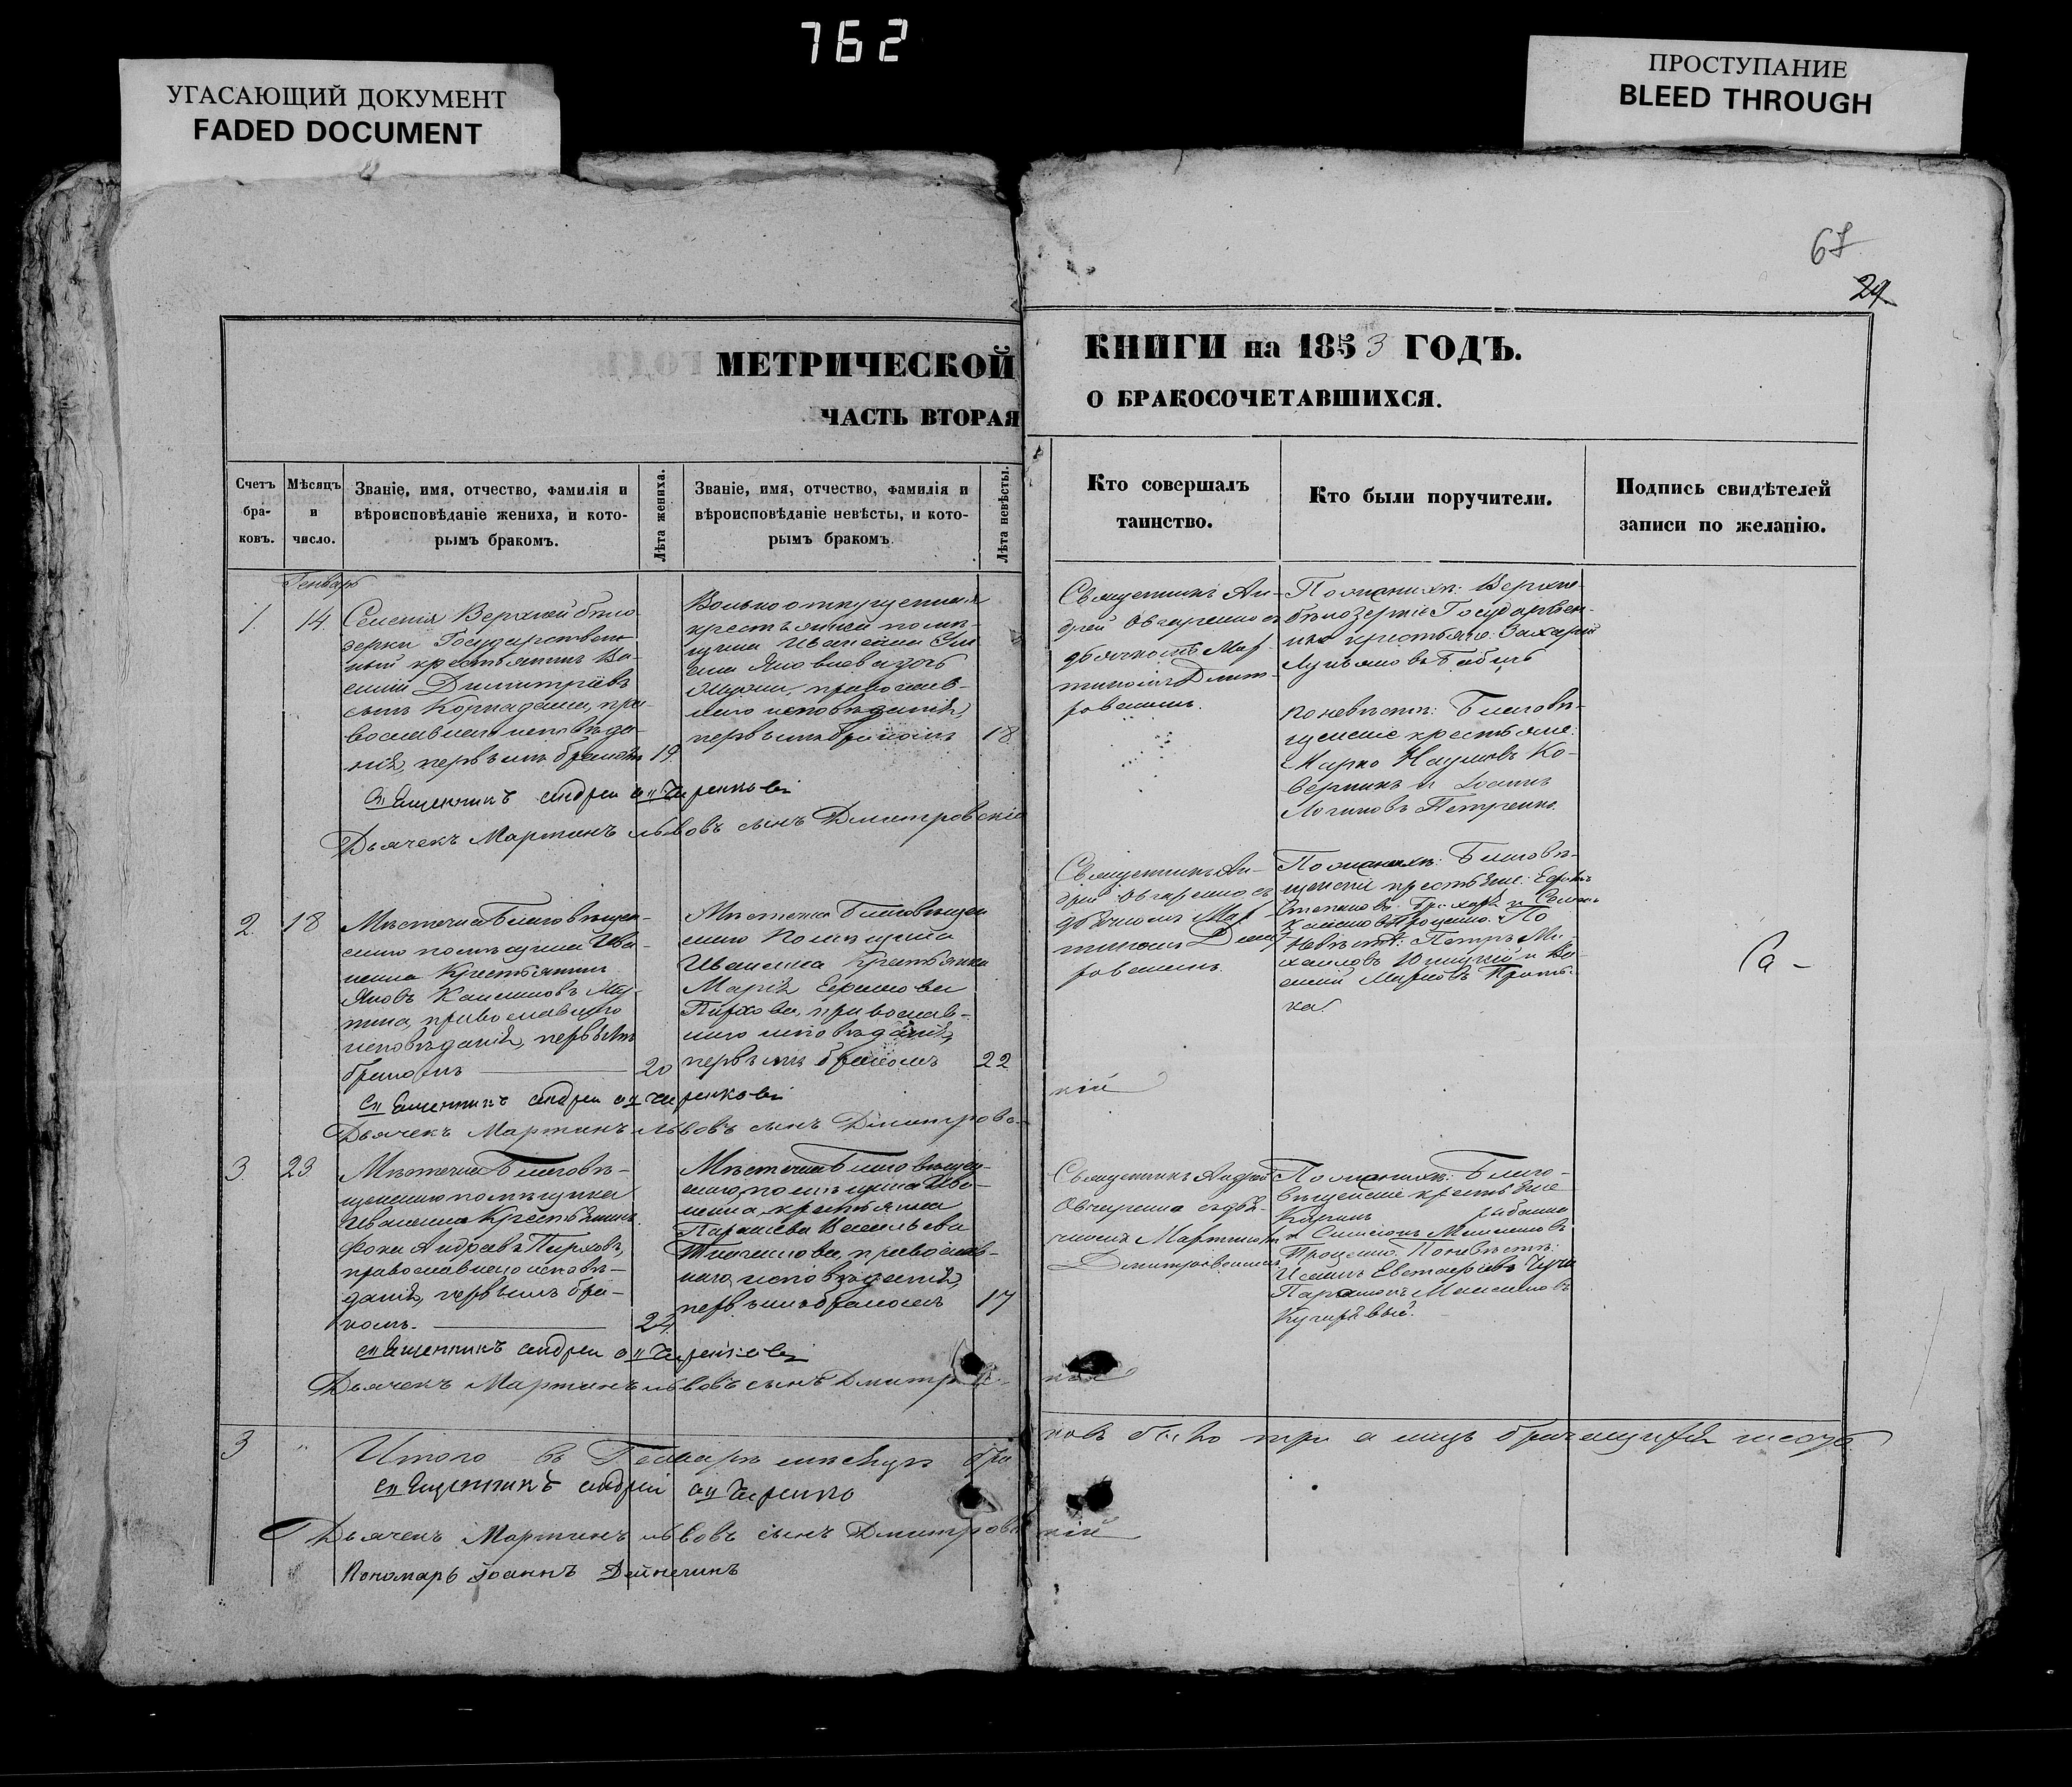 762
УГАСАЮЩИЙ ДОКУМЕНТ
FADED DOCUMENT
ПРОСТУПАНИЕ
BLEED THROUGH
67
29
МЕТРИЧЕСКОЙ
ЧАСТЬ ВТОРАЯ
КНИГИ на 1853 ГОДЪ.
О БРАКОСОЧЕТАВШИХСЯ.
Счетъ бра-ковъ.
Мѣсяцъ и число.
Званіе, имя, отчество, фамилія и
вѣроисповѣданіе жениха, и кото-
рымъ бракомъ.
Лѣта жениха.
Званіе, имя, отчество, фамилія и
вѣроисповѣданіе невѣсты, и кото-
рымъ бракомъ.
Лѣта невѣсты.
Кто совершалъ
таинство.
Кто были поручители.
Подпись свидѣтелей
записи по желанію.
Генварь
1. 14.
Селенія Верхней бѣло-
зерки Государствен-
ный крестьянинъ Ва-
силій Димитріевъ
сынъ пра-
вославнаго исповѣда-
нія, первымъ бракомъ 19.
Вольноотпущенная
крестьянка помѣ-
щика Иваненка
Яковлева дочь
православ-
наго исповѣданія,
первымъ бракомъ 18
Священникъ Ан-
дрей Овчаренко съ
дьячкомъ Мар-
тиномъ Дмит-
ровскимъ.
По женихѣ: Верхне-
бѣлозерскіе Государствен-
ные крестьяне: Захарій
Лукьяновъ
по невѣстѣ: Благовѣ-
щенскіе крестьяне:
Марко Наумовъ Ко-
и Іоаннъ
Логиновъ Петренко.
Священникъ Андрей Овчаренковъ
Дьячекъ Мартинъ Львовъ сынъ Дмитровскій
2. 18
Мѣстечка Благовѣщен-
скаго помѣщика Ива-
ненка Крестьянинъ
Яковъ
православнаго
исповѣданія, первымъ
бракомъ 20
Мѣстечка Благовѣщен
скаго Помѣщика
Иваненка Крестьянка
Марія Ефимова
Пархова, православ-
наго исповѣданія,
первымъ бракомъ 22
Священникъ Ан-
дрей Овчаренко съ
дьячкомъ Мар-
тиномъ Дмит-
ровскимъ.
По женихѣ: Благовѣ-
щенскіе крестьяне: Ефимъ
Степановъ и
Проценко. По
невѣстѣ: Петръ Ми-
хайловъ и Ва-
силій Марковъ
ка.
Священникъ Андрей Овчаренковъ
Дьячекъ Мартинъ Львовъ сынъ Дмитровс-
кій
3. 23
Мѣстечка Благовѣ-
щенскаго помѣщика
Иваненка Крестьянинъ
Фока Андреевъ Пирховъ,
православнаго исповѣ-
данія, первымъ бра-
комъ. 24.
Мѣстечка Благовѣщен-
скаго помѣщика Ива-
ненка крестьянка
Параскева Васильева
православ-
наго исповѣданія,
первымъ бракомъ 17
Священникъ Андрей
Овчаренко съ дья-
чкомъ Мартиномъ
Дмитровскимъ
По женихѣ: Благо-
вѣщенскіе крестьяне
рыбалка
и Симеонъ
Проценко. По невѣстѣ:
Евстафіевъ
Кучерявый.
Священникъ Андрей Овчаренковъ
Дьячекъ Мартинъ Львовъ сынъ Дмитровс-
кій
3 " Итого въ Генварѣ мѣсяцѣ бра
ковъ было три а лицъ шесть
Священникъ Андрей Овчаренко
Дьячекъ Мартинъ Львовъ сынъ Дмитровскій
Пономарь Іоаннъ Дейнегинъ